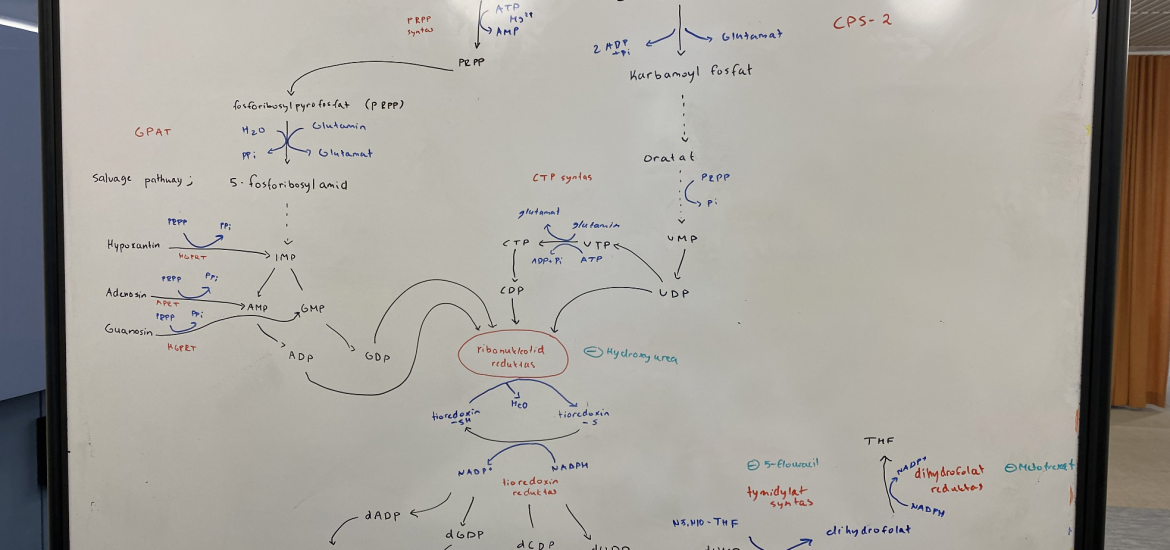 PRPP
syntas
ATP
Mg²⁺
AMP
PRPP
2 ADP
+Pi
Glutamat
CPS-2
Karbamoyl fosfat
fosforibosylpyrofosfat (PRPP)
GPAT
H2O
Glutamin
PPi
Glutamat
Salvage pathway;
5-fosforibosylamid
Oratat
PRPP
Pi
CTP syntas
glutamat
glutamin
CTP
UTP
ADP+Pi
ATP
UMP
PRPP
PPi
Hypoxantin
HGPRT
IMP
CDP
UDP
PRPP
PPi
Adenosin
APRT
AMP
GMP
PRPP
PPi
Guanosin
HGPRT
ADP
GDP
ribonukleotid
reduktas
Hydroxyurea
H2O
tioredoxin
-SH
tioredoxin
-S
NADP⁺
NADPH
tioredoxin
reduktas
THF
5-flouracil
NADP⁺
dihydrofolat
reduktas
tymidylat
syntas
NADPH
N5,N10-THF
dihydrofolat
dADP
dGDP
dCDP